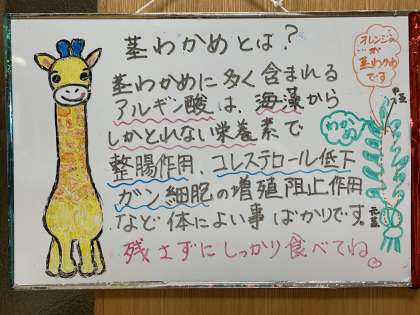 茎わかめとは?
茎わかめに多く含まれる
アルギン酸は、海藻から
しかとれない栄養素で
整腸作用、コレステロール低下
ガン細胞の増殖阻止作用
など体によい事ばかりです。
残さずにしっかり食べてね。
オレンジの
が
茎わかめ
です
わかめ